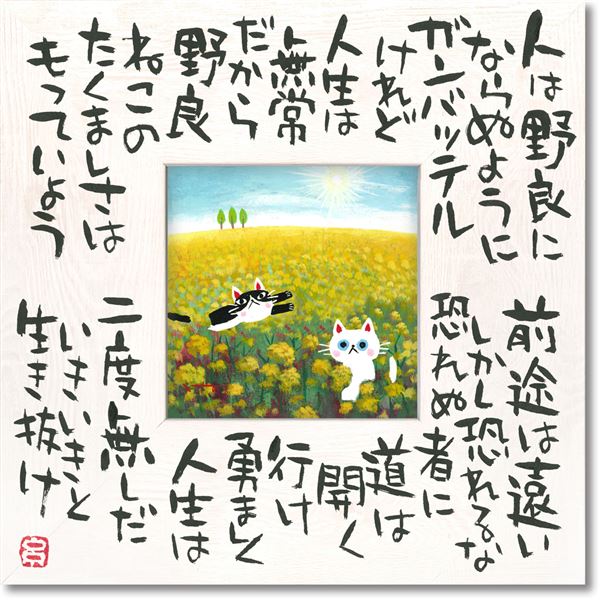 人は野良に
ならぬように
ガンバッテル
けれど
人生は
無常
だから
野良
ねこの
たくましさは
もっていよう
前途は遠い
しかし恐れるな
恐れぬ者に
道は
開く
行け
勇ましく
人生は
二度無しだ
いきいきと
生き抜け